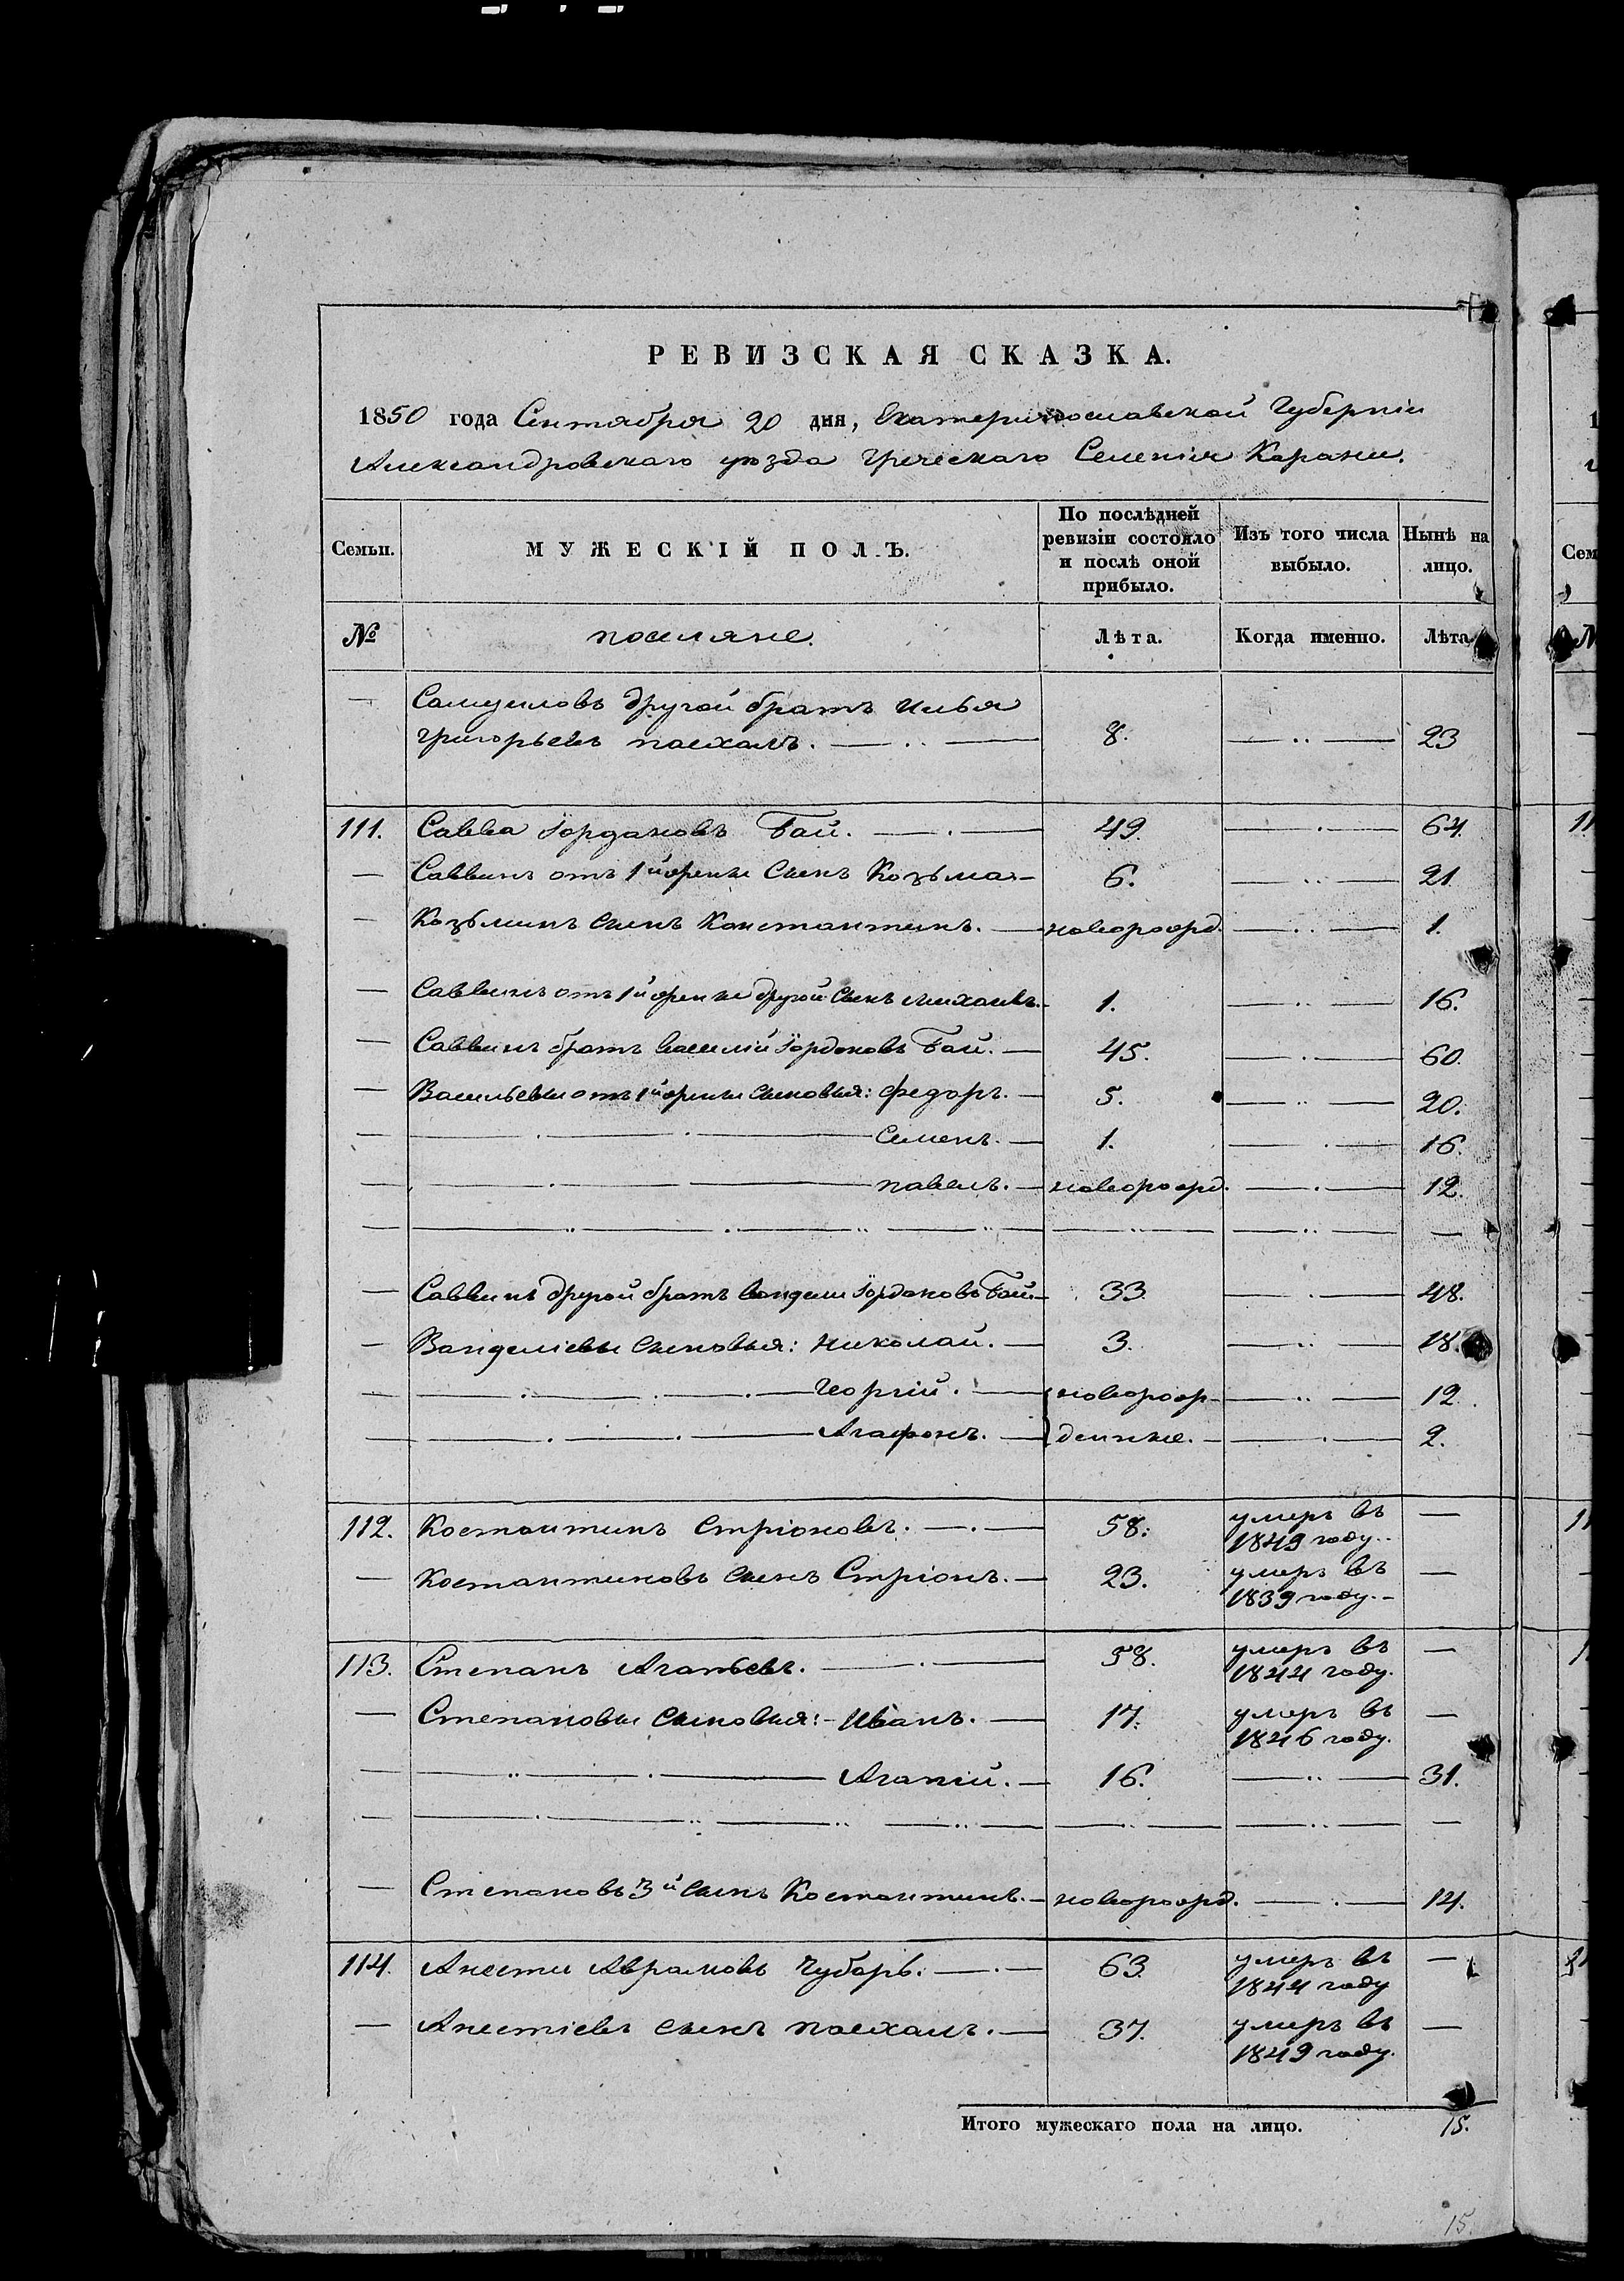 РЕВИЗСКАЯ СКАЗКА.
1850 года Сентября 20 дня, Екатеринославской Губерніи
Александровскаго уѣзда Греческаго Селенія Карани.
Семьи. МУЖЕСКІЙ ПОЛЪ. По послѣдней ревизіи состояло и послѣ оной прибыло. Изъ того числа выбыло. Нынѣ на лицо.
№ поселяне. Лѣта. Когда именно. Лѣта
— Самуиловъ другой братъ Илья
Григорьевъ Пасхалъ. — 8. — 23
111. Савва Іордановъ Бай. — 49. — 64.
— Саввинъ отъ 1й жены сынъ Козьма — 6. — 21.
— Козьминъ сынъ Константинъ. — новорожд. — 1.
— Саввинъ отъ 1й жены другой сынъ Михаилъ. — 1. — 16.
— Саввинъ братъ Василій Іордановъ Бай. — 45. — 60.
— Васильевы отъ 1й жены сыновья: Федоръ. — 5. — 20.
— Семенъ. — 1. — 16.
— Павелъ. — новорожд. — 12.
— Саввинъ другой братъ Вангели Іордановъ Бай — 33. — 48.
— Вангеліевы сыновья: Николай. — 3. — 18.
— Георгій. — новорож- — 12.
— Агафонъ. — денные. — 2.
112. Костантинъ Стріоновъ. — 58. умеръ въ 1849 году. —
— Костантиновъ сынъ Стріонъ. — 23. умеръ въ 1839 году. —
113. Степанъ Агапьевъ. — 58. умеръ въ 1844 году. —
— Степановы сыновья: Иванъ. — 17. умеръ въ 1846 году. —
— Агапій. — 16. — 31.
— Степановъ 3й сынъ Костантинъ. — новорожд. — 14.
114. Анести Аврамовъ Чубарь. — 63. умеръ въ 1844 году —
— Анестіевъ сынъ Пасхалъ. — 37. умеръ въ 1849 году. —
Итого мужескаго пола на лицо. 15.
15.